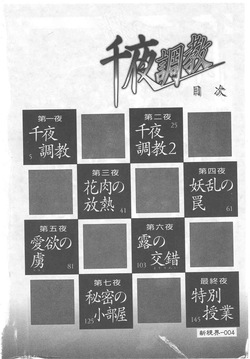 千夜調教
目次
第一夜
千夜
調教
5
第二夜
千夜
調教2
25
第三夜
花肉の
放熱
41
第四夜
妖乱の
罠
61
第五夜
愛欲の
虜
81
第六夜
露の
交錯
103
第七夜
秘密の
小部屋
125
最終夜
特別
授業
145
新視界-004